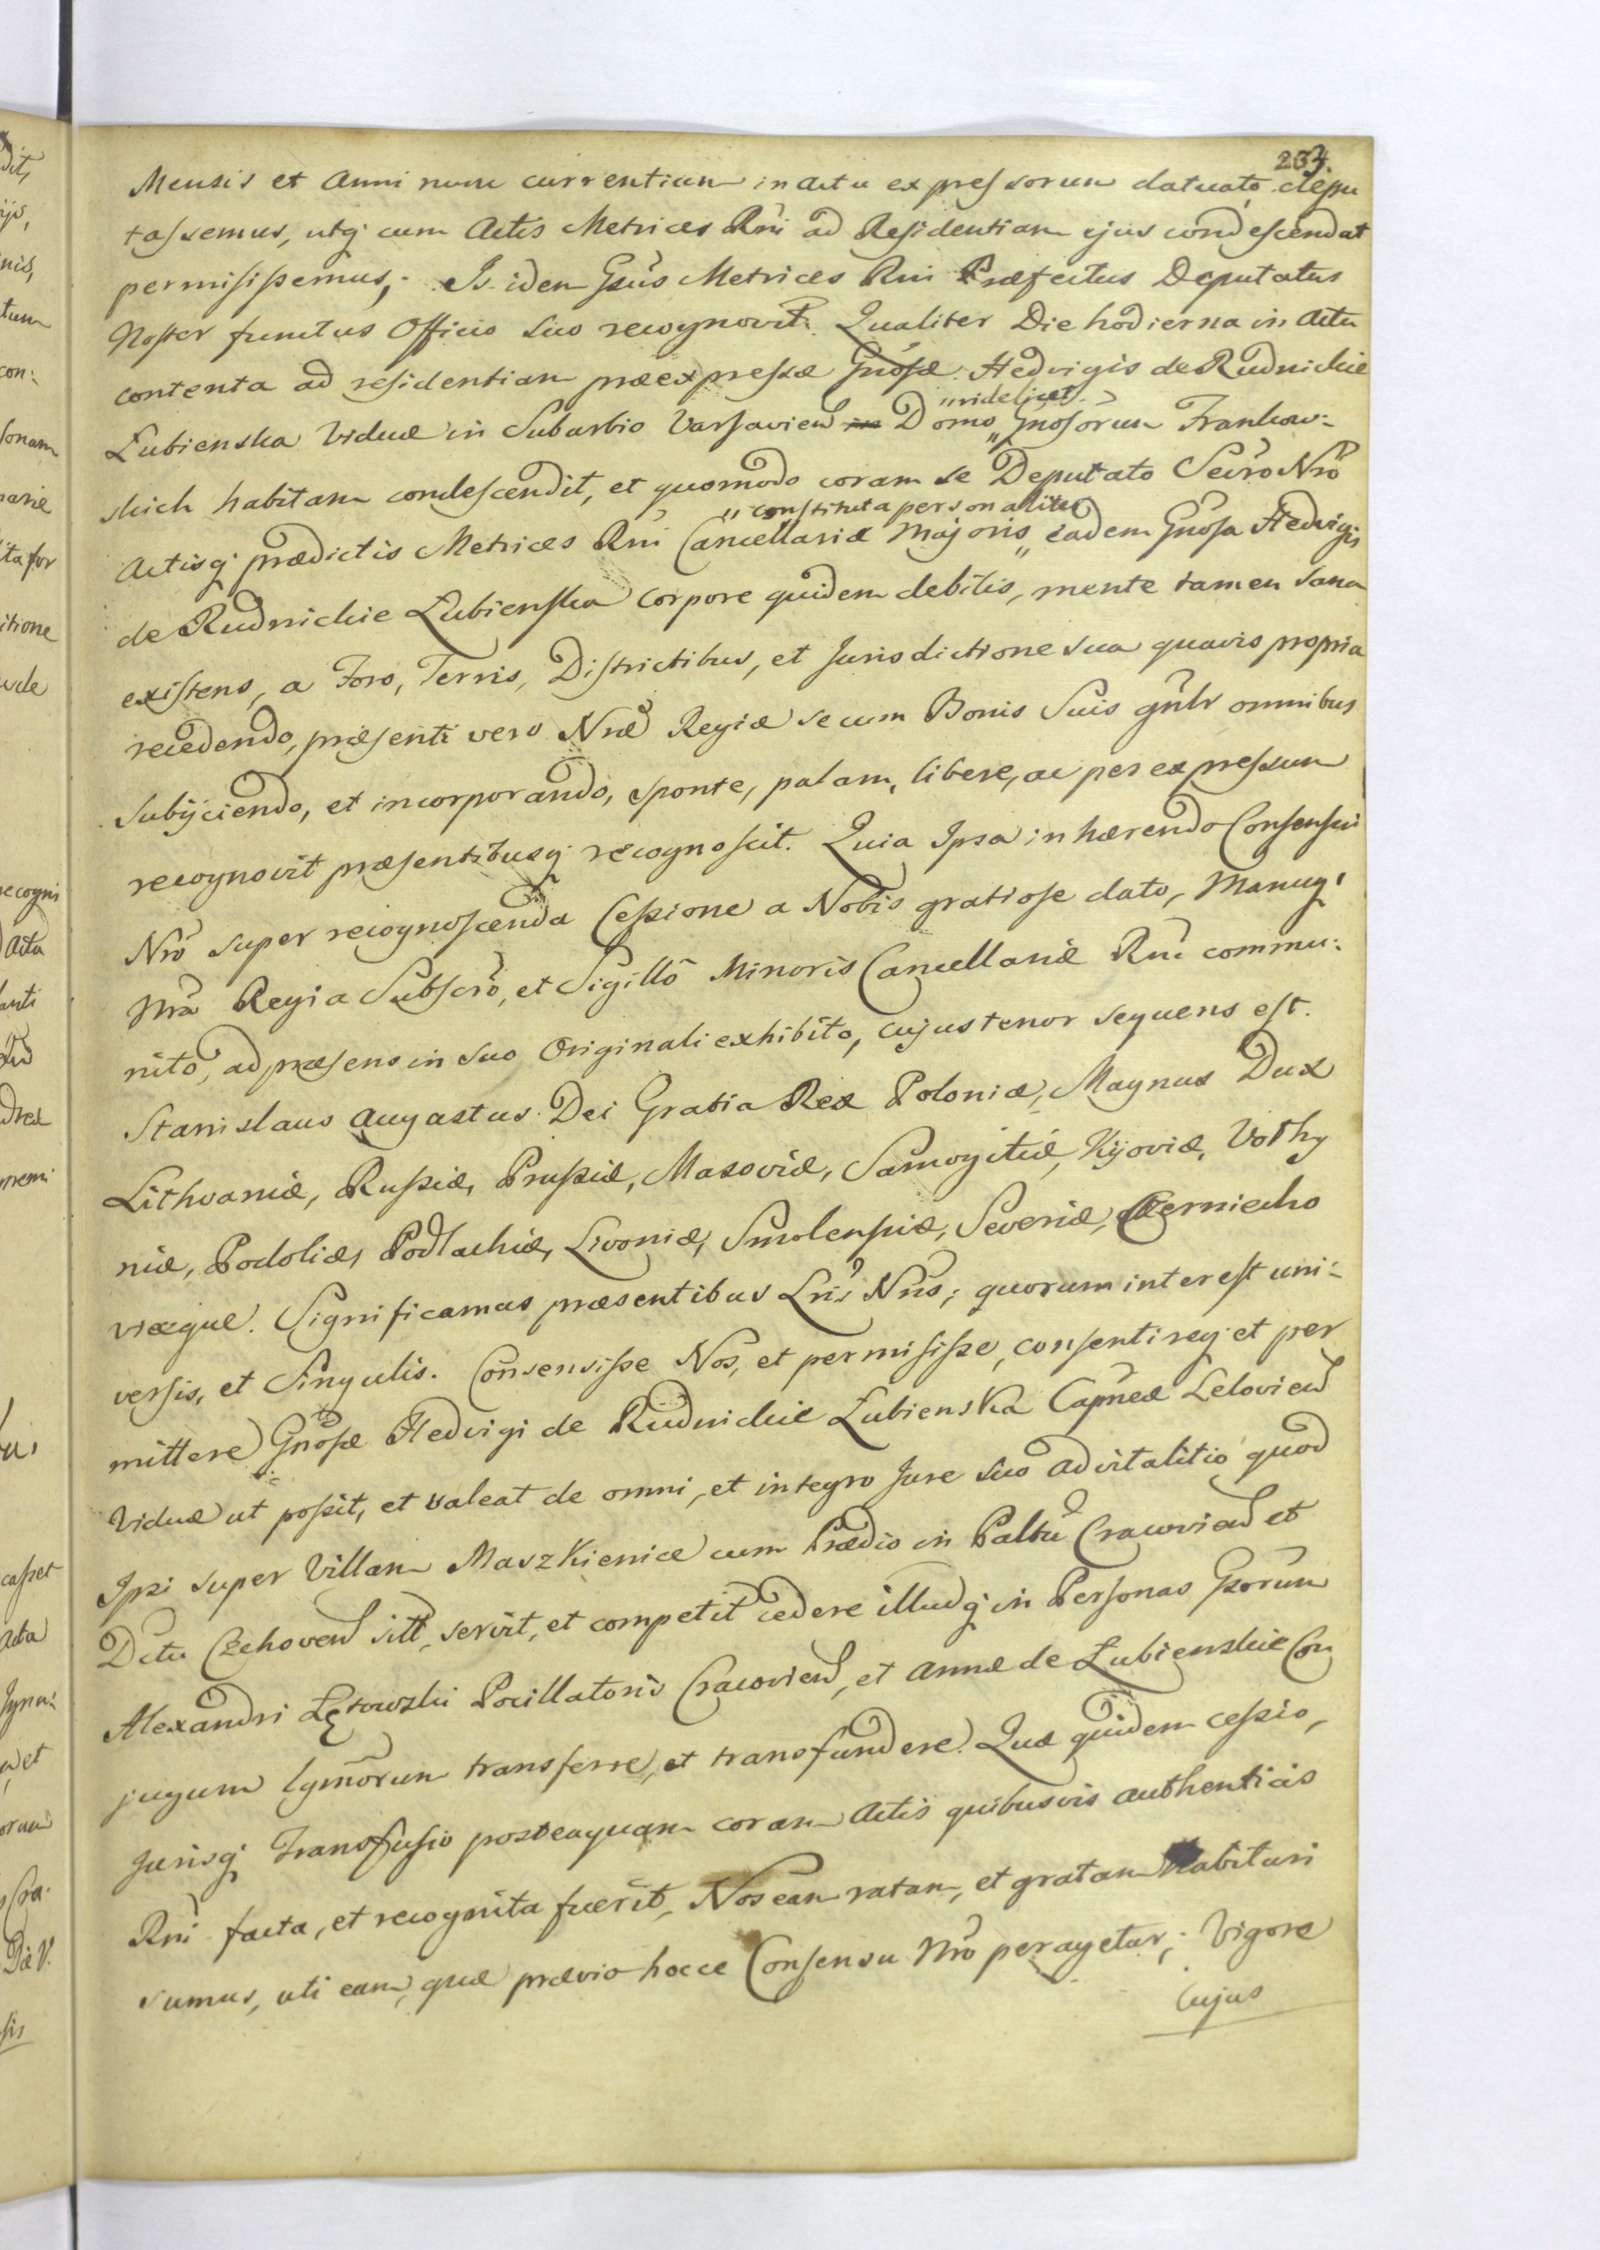 234.
Mensis et Anni nunc currentium in actu expressorum datuato depu
tassemus, utq cum Actis Metrices Rni ad Residentiam ejus condescendat
permisissemus, Is idem Gsus Metrices Rni Præfectus Deputatus
Noster functus Officio suo recognovit. Qualiter Die hodierna in Actu
contenta ad residentiam præexpressæ Gnosæ Hedvigis de Rudnickie
Łubienska Viduæ in Suburbio Varsavien Domo "videlicet" Gnosorum Frankow:
skich habitam condescendit, et quomodo coram se Deputato Secro Nro
Actisq prædictis Metrices Rni Cancellariæ Majoris "constituta personaliter" eadem Gnosa Hedvigis
de Rudnickie Łubienska corpore quidem debilis, mente tamen sana
existens, a Foro, Terris, Districtibus, et Jurisdictione sua quavis propria
recedendo, præsenti vero Nræ Regiæ se cum Bonis Suis gnlr omnibus
Subijciendo, et incorporando, sponte, palam, libere, ac per expressum
recognovit præsentibusq recognoscit. Quia Ipsa inhærendo Consensui
Nro super recognoscenda Cessione a Nobis gratiose dato, Manuq
Nra Regia Subscro, et Sigillo Minoris Cancellariæ Rni commu:
nito, ad præsens in suo Originali exhibito, cujus tenor sequens est.
Stanislaus Augustus Dei Gratia Rex Poloniæ, Magnus Dux
Lithvaniæ, Russiæ, Prussiæ, Masoviæ, Samogitiæ, Kijoviæ, Volhy
niæ, Podoliæ, Podlachiæ, Livoniæ, Smolensciæ, Severiæ, Czerniecho
viæque. Significamus præsentibus Lris Nris; quorum interest uni:
versis, et Singulis. Consensisse Nos, et permisisse, consentireq et per
mittere Gnosæ Hedvigi de Rudnickie Łubienska Capneæ Lelovien
Viduæ ut possit, et valeat de omni, et integro Jure suo advitalitio quod
Ipsi super Villam Maszkienice cum Prædio in Palttu Cracovien et
Dctu Czchoven sitt, servit, et competit cedere illudq in Personas Gsorum
Alexandri Łętowski Pocillatoris Cracovien, et Annæ de Łubienskie Con
jugum lgmorum transferre, et transfundere. Quæ quidem cessio,
Jurisq Transfusio posteaquam coram Actis quibusvis authenticis
Rni facta, et recognita fuerit, Nos eam ratam, et gratam habituri
sumus, uti eam, quæ prævio hocce Consensu Nro peragetur; Vigore
Cujus